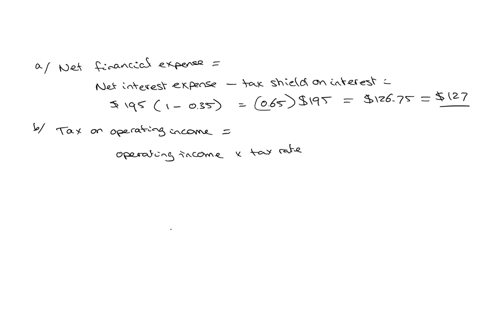 a/ Net financial expense =
Net interest expense - tax shield on interest =
$195 (1 - 0.35) = (0.65) $195 = $126.75 = $127
b/ Tax on operating income =
operating income x tax rate